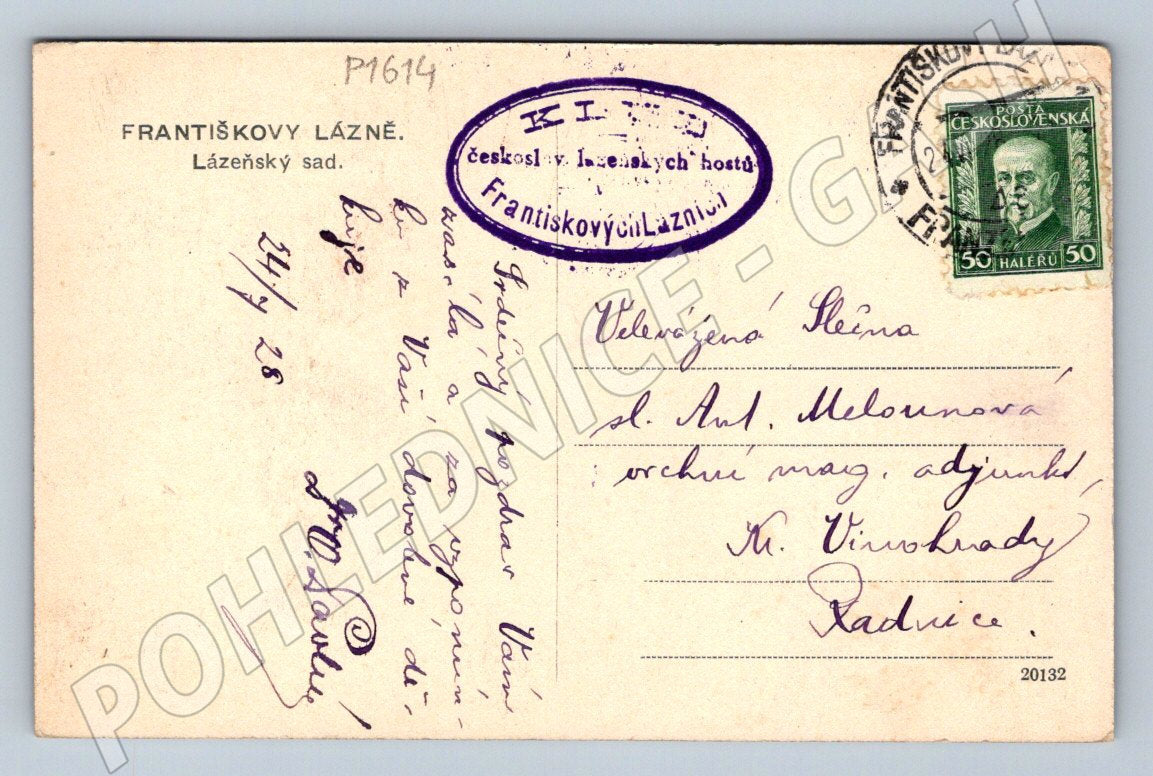 P1614
FRANTIŠKOVY LÁZNĚ.
Lázeňský sad.
KLUB
českoslov. lázeňských hostů
v
Františkových Lázních
FRANTIŠKOVY LÁZNĚ
POŠTA
ČESKOSLOVENSKÁ
50 HALÉŘŮ 50
Srdečný pozdrav Vám
zasílá a za vzpomín-
ku z Vaší dovolené dě-
kuje
24/7 28
Velevážená Slečna
sl. Ant. Melounová
vrchní mag. adjunkt,
Kr. Vinohrady
Radnice.
20132
POHLEDNICE - GASH